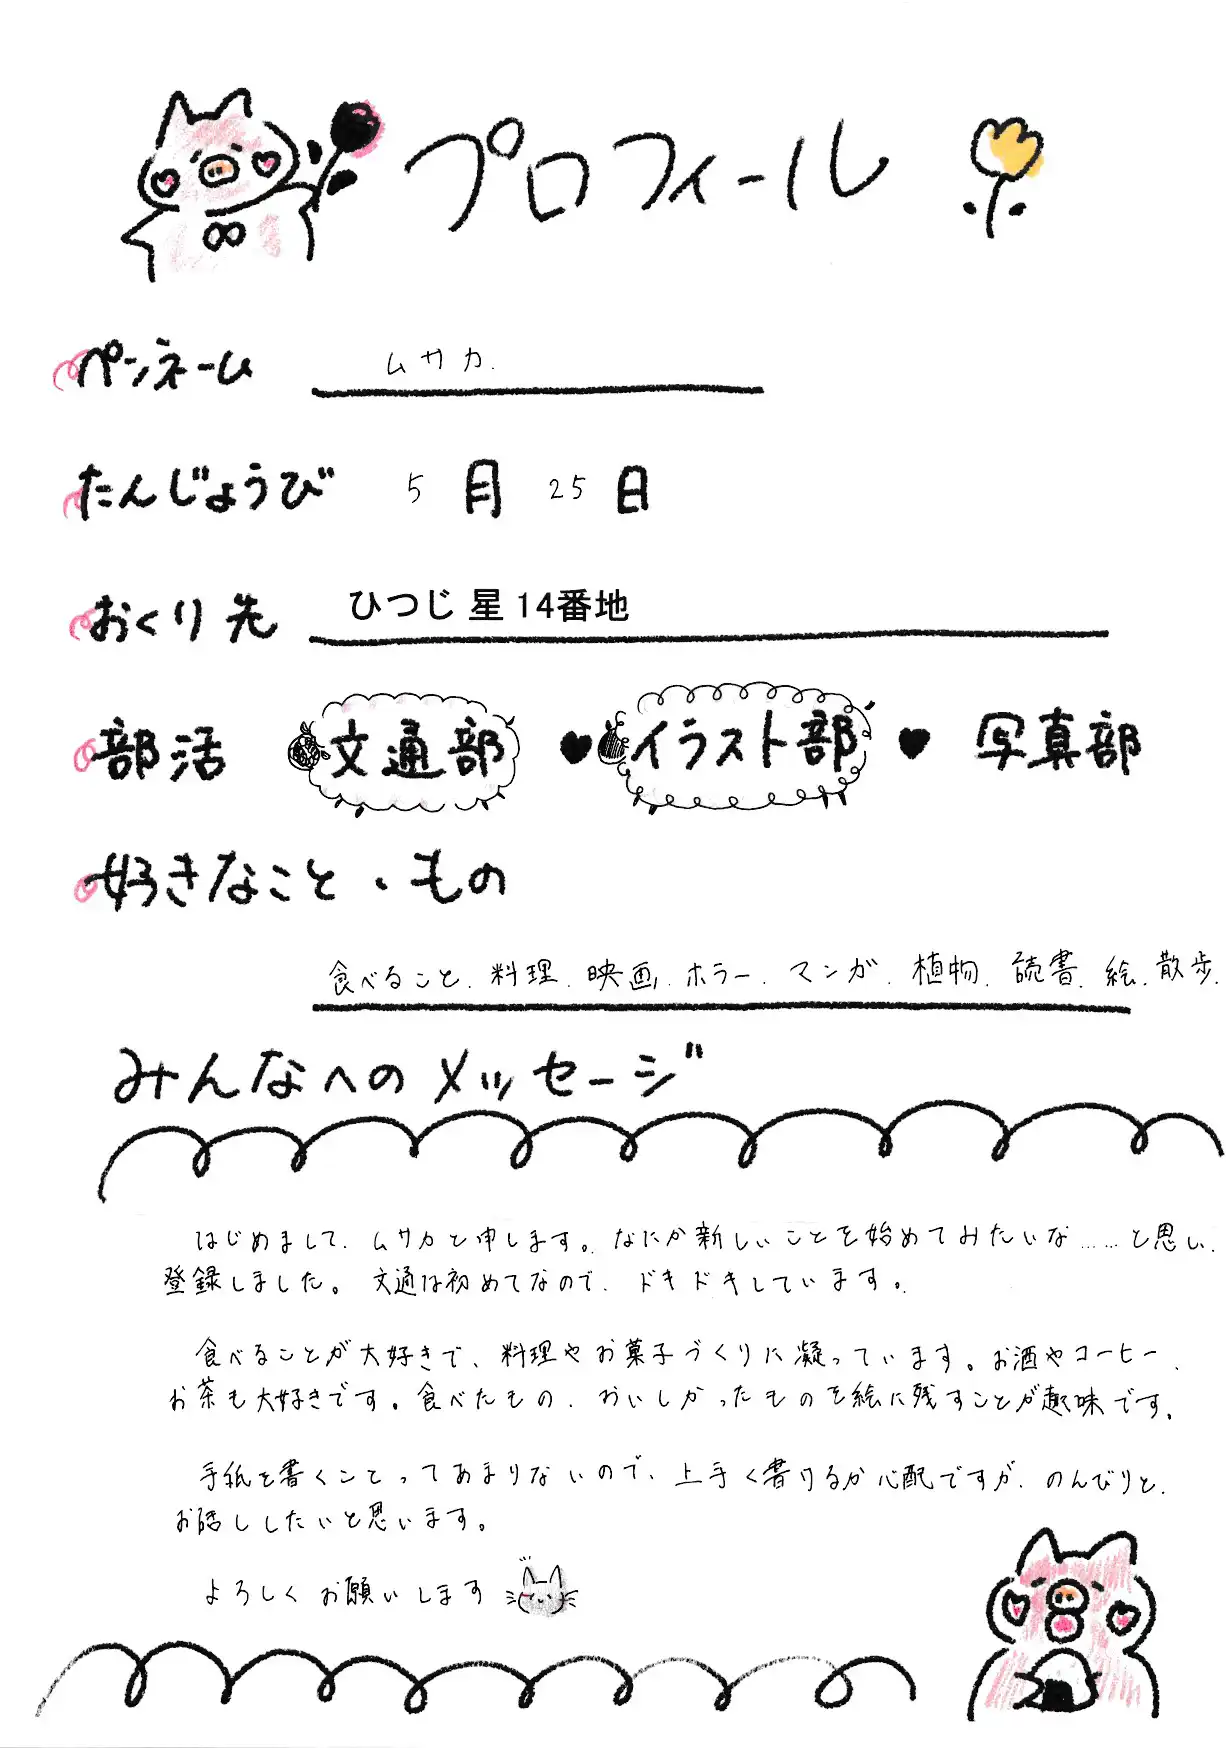 プロフィール
ペンネーム ムサカ.
たんじょうび 5月25日
おくり先 ひつじ 星 14番地
部活 文通部 ♥ イラスト部 ♥ 写真部
好きなこと・もの
食べること、料理、映画、ホラー、マンガ、植物、読書、絵、散歩、
みんなへのメッセージ
はじめまして、ムサカと申します。なにか新しいことを始めてみたいな……と思い、
登録しました。文通は初めてなので、ドキドキしています。
食べることが大好きで、料理やお菓子づくりに凝っています。お酒やコーヒー、
お茶も大好きです。食べたもの、おいしかったものを絵に残すことが趣味です。
手紙を書くことってあまりないので、上手く書けるか心配ですが、のんびりと、
お話ししたいと思います。
よろしくお願いします